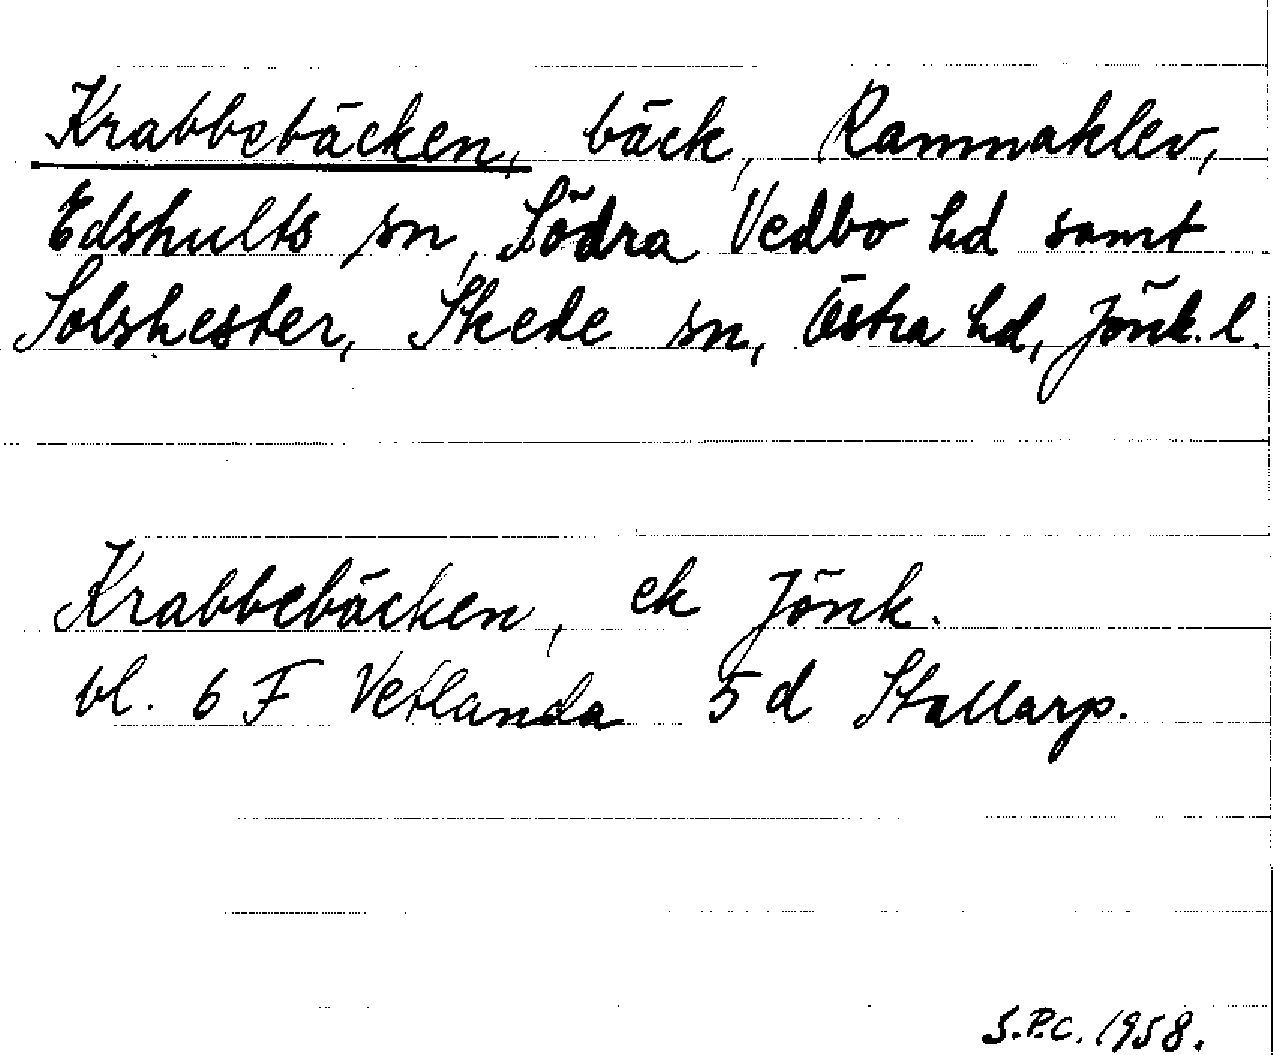 Krabbebäcken, bäck, Ramnaklev,
Edshults sn, Södra Vedbo hd samt
Solshester, Skede sn, Östra hd, Jönk. l.
Krabbebäcken, ek Jönk.
bl. 6 F Vetlanda 5 d Stallarp.
S.P.C. 1958.